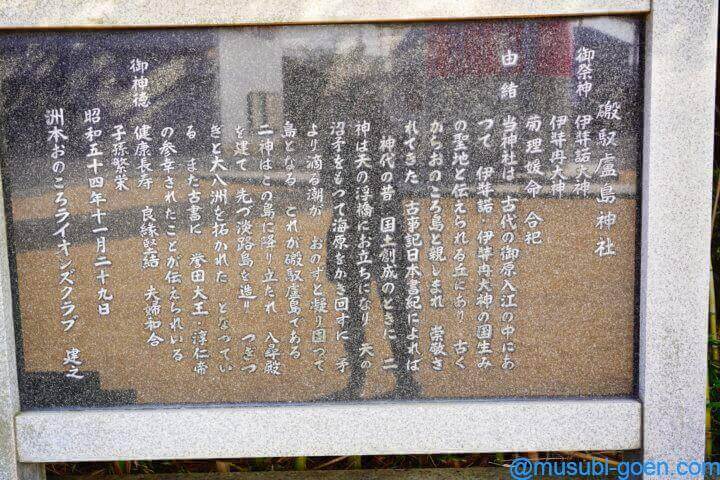 磤馭盧島神社
御祭神 伊弉諾大神
伊弉冉大神
菊理媛命 合祀
由緒 当神社は 古代の御原入江の中にあ
つて 伊弉諾・伊弉冉大神の国生み
の聖地と伝えられる丘にあり 古く
からおのころ島と親しまれ 崇敬さ
れてきた 古事記日本書紀によれば
神代の昔 国土創成のときに 二
神は天の浮橋にお立ちになり 天の
沼矛をもつて海原をかき回すに 矛
より滴る潮が おのずと凝り固つて
島となる これが磤馭盧島である
二神はこの島に降り立たれ 八尋殿
を建て 先づ淡路島を造り つぎつ
ぎと大八洲を拓かれた となつてい
る また古書に 誉田大王・淳仁帝
の参幸されたことが伝えられいる
御神徳 健康長寿 良縁堅結 夫婦和合
子孫繁栄
昭和五十四年十一月二十九日
洲本おのころライオンズクラブ 建之
@musubi-goen.com